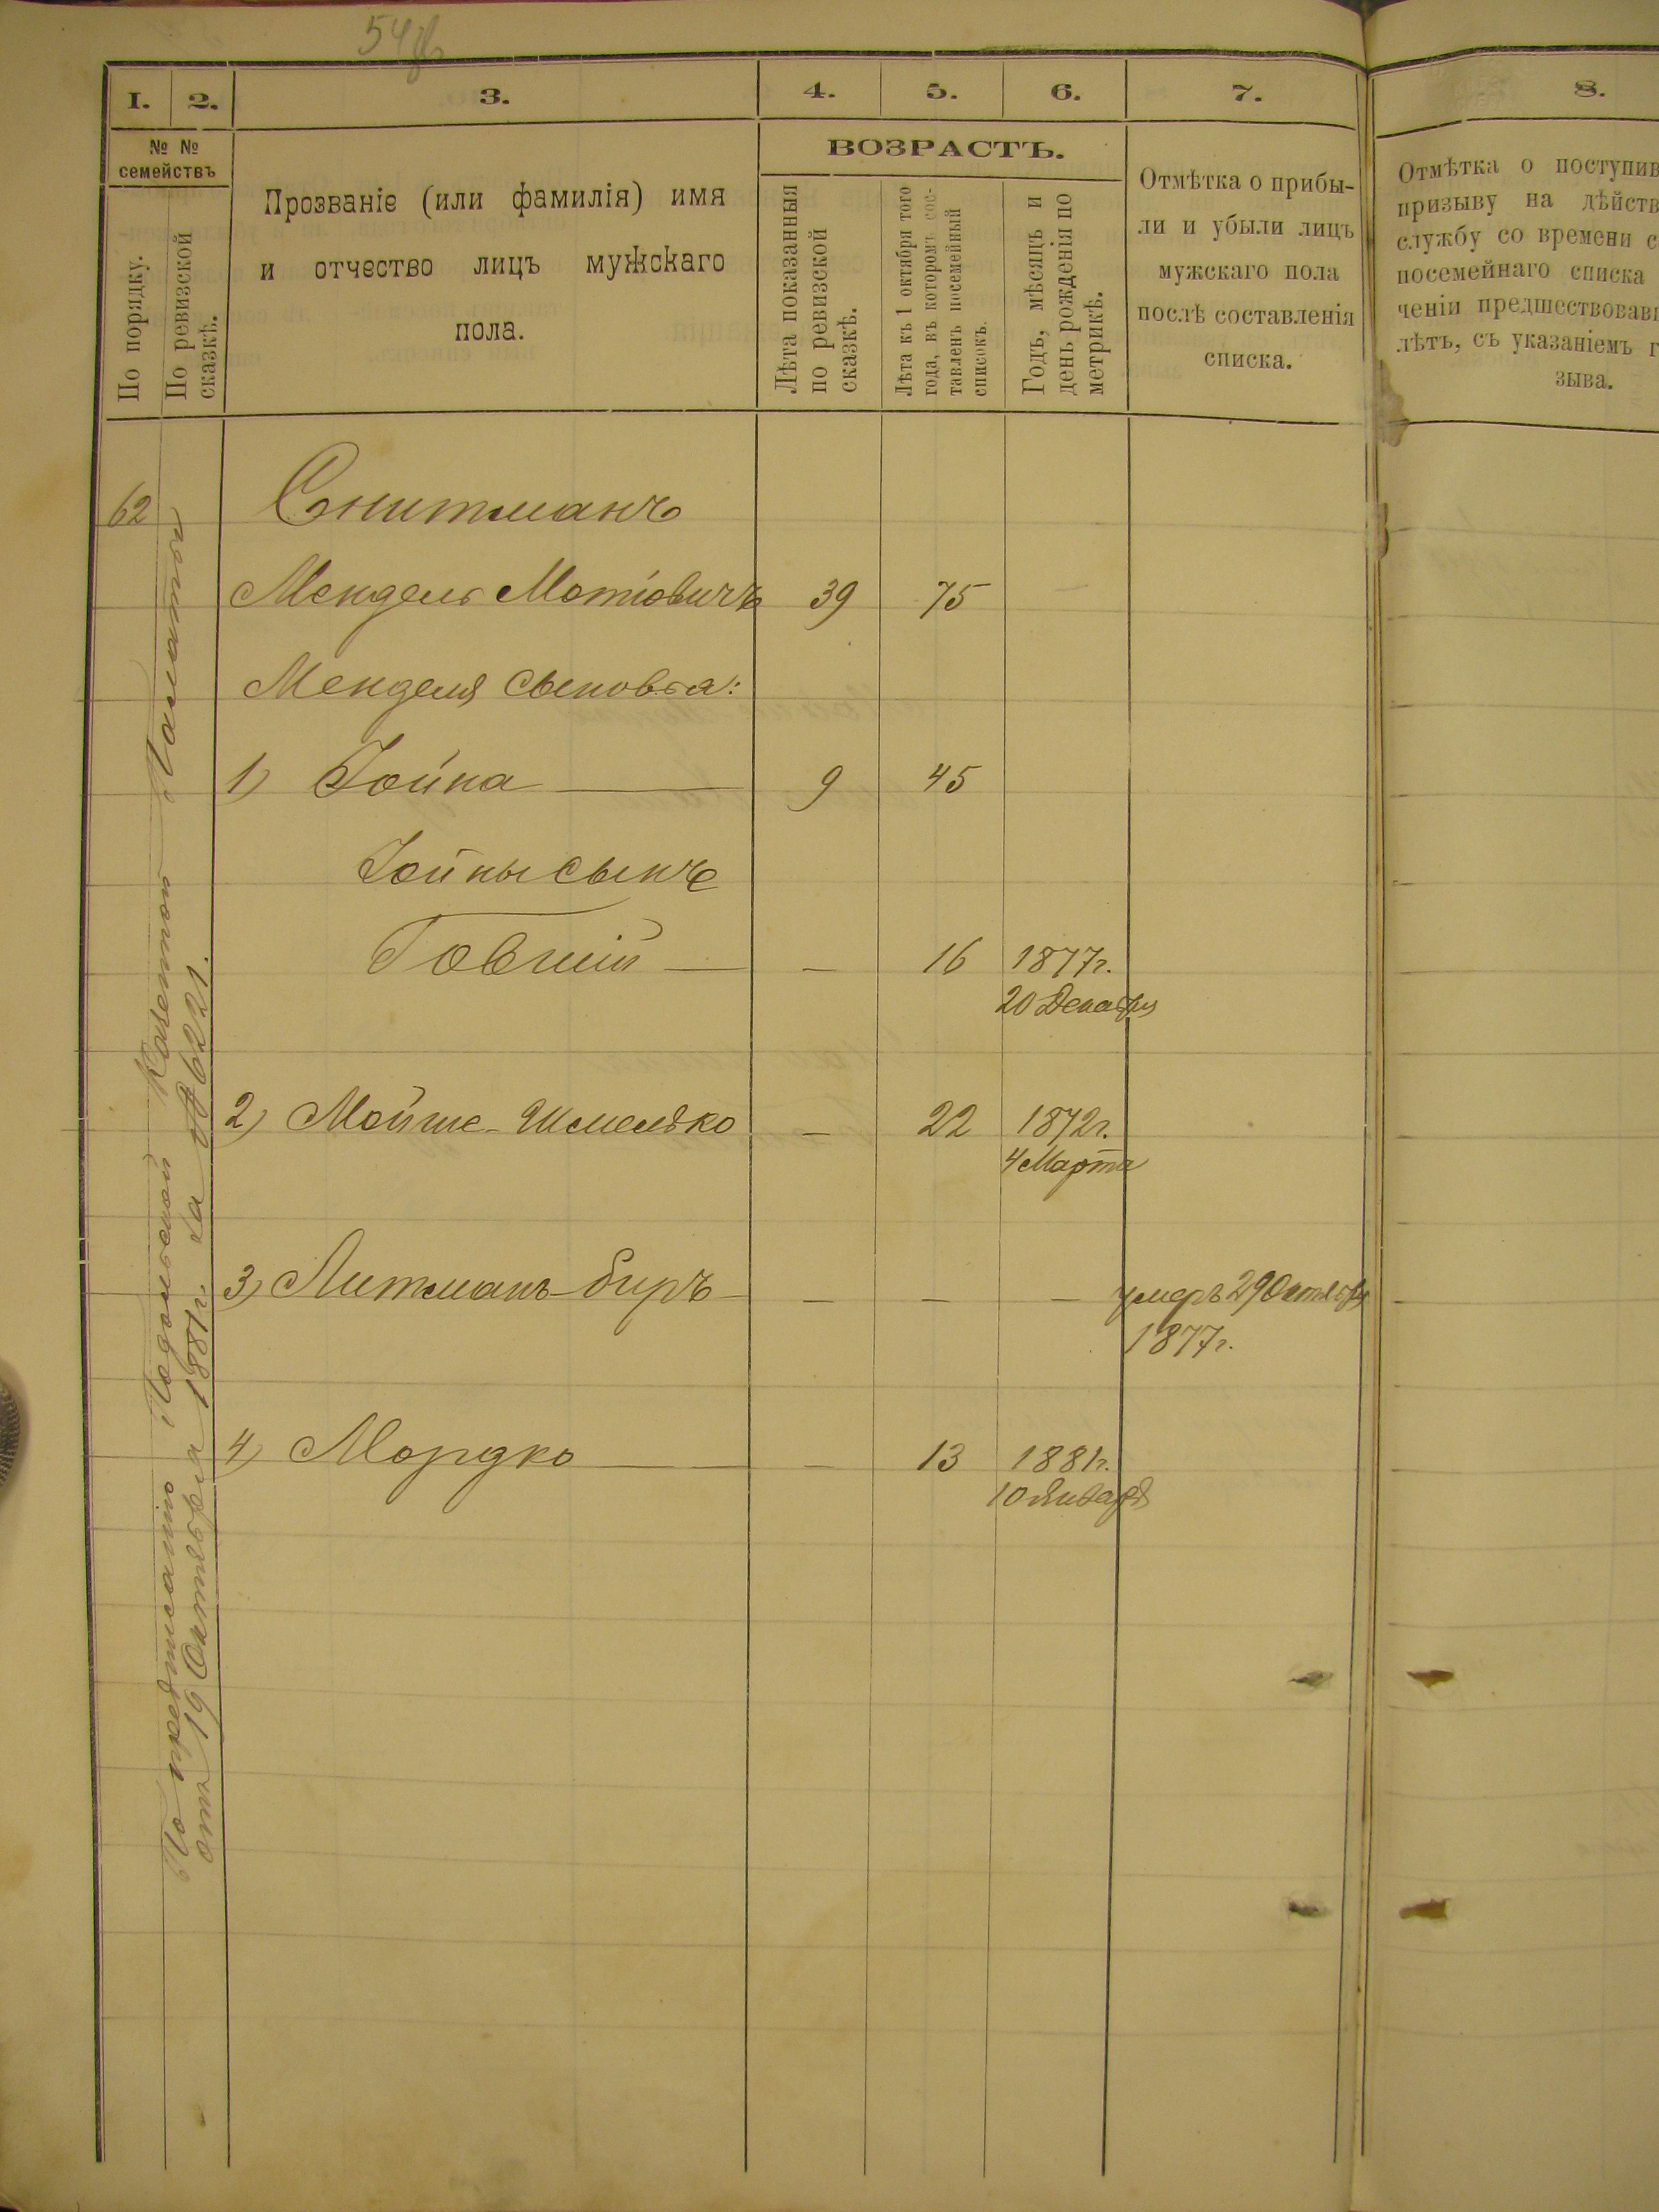 I. 2. 3. 4. 5. 6. 7. 8.
№ №
семействъ
По порядку.
По ревизской
сказкѣ.
Прозваніе (или фамилія) имя
и отчество лицъ мужскаго
пола.
ВОЗРАСТЪ.
Лѣта показанныя
по ревизской
сказкѣ.
Лѣта къ 1 октября того
года, въ которомъ сос-
тавленъ посемейный
списокъ.
Годъ, мѣсяцъ и
день рожденія по
метрикѣ.
Отмѣтка о прибы-
ли и убыли лицъ
мужскаго пола
послѣ составленія
списка.
Отмѣтка о поступив
призыву на дѣйств
службу со времени с
посемейнаго списка
ченіи предшествовав
лѣтъ, съ указаніемъ г
зыва.
62 Снитманъ
Мендель Мотіовичъ 39 75 —
Менделя сыновья:
1) Іойна — 9 45
Іойны сынъ
Говшій — — 16 1877г.
20 Декабря
2) Мойше-Шмелько — 22 1872г.
4 Марта
3) Литманъ-биръ — — — — умеръ 29 Октября
1877г.
4) Мордко — — 13 1881г.
10 Января
По предписанію Подольской Казенной Палаты
отъ 19 Октября 1881г. за № 6221.